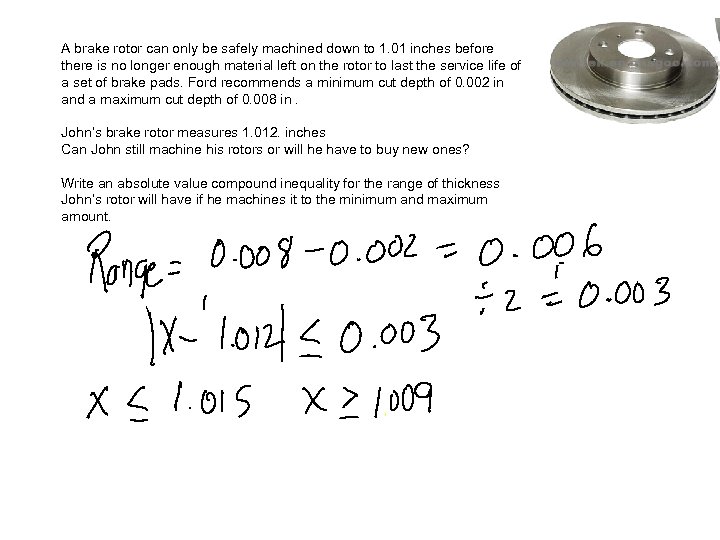 A brake rotor can only be safely machined down to 1.01 inches before
there is no longer enough material left on the rotor to last the service life of
a set of brake pads. Ford recommends a minimum cut depth of 0.002 in
and a maximum cut depth of 0.008 in .
John's brake rotor measures 1.012. inches
Can John still machine his rotors or will he have to buy new ones?
Write an absolute value compound inequality for the range of thickness
John's rotor will have if he machines it to the minimum and maximum
amount.
Range = 0.008 - 0.002 = 0.006
÷ 2 = 0.003
|x - 1.012| ≤ 0.003
x ≤ 1.015 x ≥ 1.009